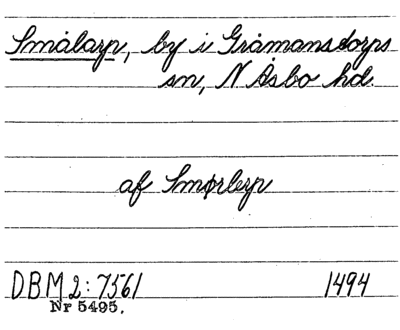 Smålarp, by i Gråmanstorps
sn, N Åsbo hd.
af Smørlerp
DBM 2: 7561 1494
Nr 5495.